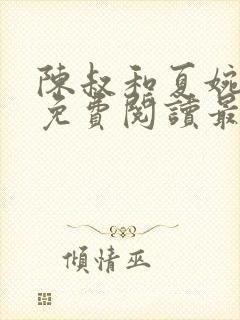 陳叔和夏婉
免費閱讀最
傾情巫